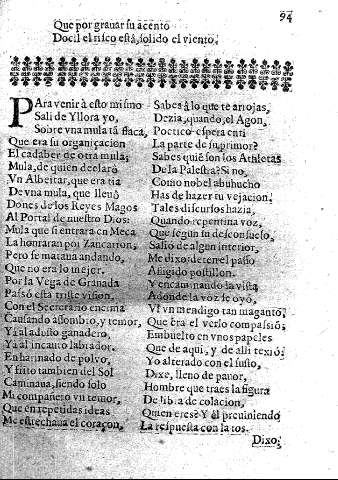 94
Que por grauar su acento
Docil el risco està, solido el viento.
PAra venir à esto mismo
Sali de Yllora yo,
Sobre vna mula tã flaca,
Que era su organiçacion
El cadaber de otra mula;
Mula, de quien declarò
Vn Albeitar, que era tia
De vna mula, que lleuò
Dones de los Reyes Magos
Al Portal de nuestro Dios:
Mula que si entrara en Meca
La honraran por Zancarron;
Pero se matana andando,
Que no era lo mejor.
Por la Vega de Granada
Passò esta triste vision,
Con el Secretario encima
Causando assombro, y temor,
Yà al adusto ganadero,
Ya al incauto labrador.
Enharinado de polvo,
Y frito tambien del Sol
Caminaua, siendo solo
Mi compañero vn temor,
Que en repetidas ideas
Me estrechaua el coraçon.
Sabes à lo que te arrojas,
Dezia, quando, el Agon,
Poetico espera en ti
La parte de su primor?
Sabes quiẽ son los Athletas
De la Palestra? Si no,
Como nobel abuhucho
Has de hazer tu vejacion.
Tales discursos hazia,
Quando repentina voz,
Que segun su desconsuelo,
Saliò de algun interior,
Me dixo: deten el passo
Afligido postillon.
Y encaminando la vista
Adonde la voz se oyò,
Vi vn mendigo tan maganto,
Que era el verlo compassiõ;
Embuelto en vnos papeles
Que de aqui, y de alli texiò:
Yo alterado con el susto,
Dixe, lleno de pauor,
Hombre que traes la figura
De libra de colacion,
Quien eres? Y èl preuiniendo
La respuesta con la tos.
Dixo;